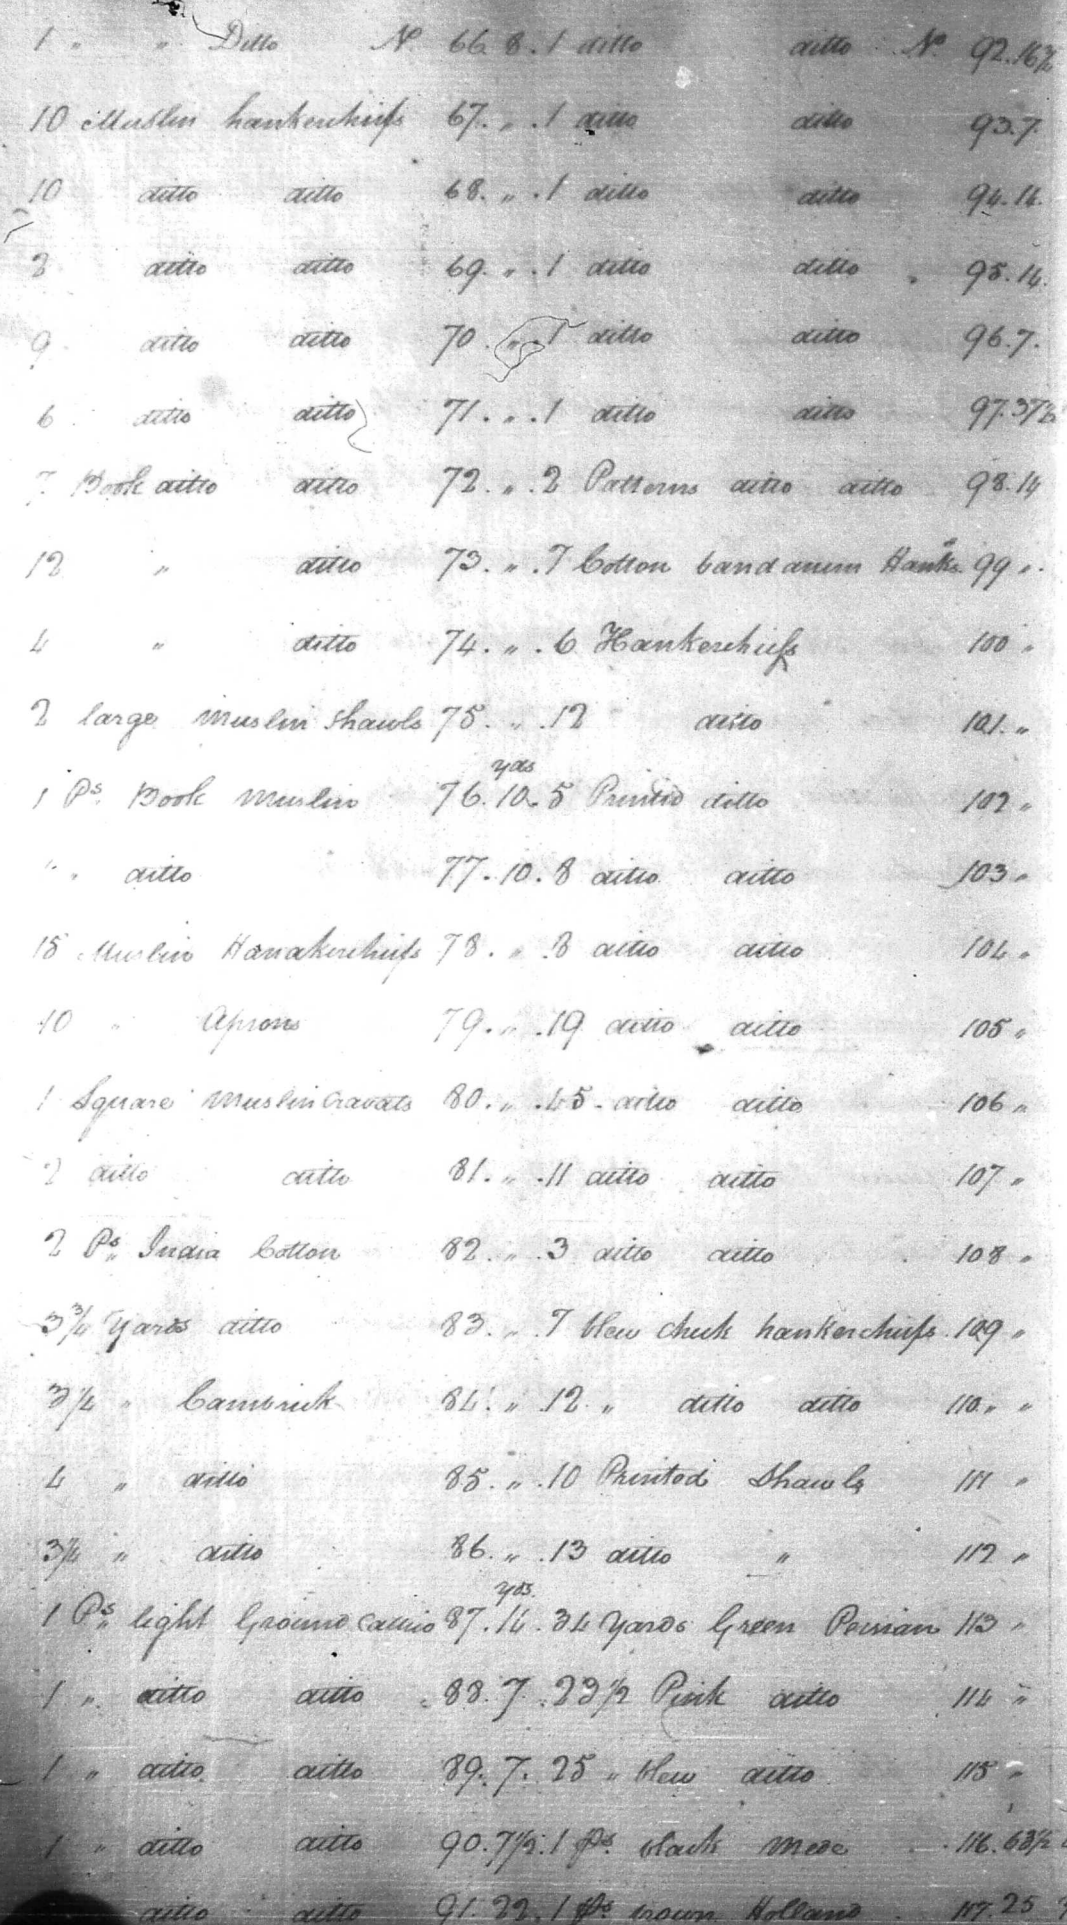 1 " " Ditto No 66. 8. 1 ditto ditto No. 92. 16½
10 Muslin hankerchiefs 67. " . 1 ditto ditto 93. 7.
10 ditto ditto 68. " . 1 ditto ditto 94. 14.
2 ditto ditto 69. " . 1 ditto ditto 95. 14.
9 ditto ditto 70. " . 1 ditto ditto 96. 7.
6 ditto ditto 71. " . 1 ditto ditto 97. 37½
7 Book ditto ditto 72. " . 2 Patterns ditto ditto 98. 14
12 " ditto 73. " . 7 Cotton bandanum Hanks. 99 " .
4 " ditto 74. " . 6 Hankerchiefs 100 "
2 large muslin shawls 75. " . 12 ditto 101. "
1 Ps. Book muslin 76. 10 yds. 5 Printed ditto 102 "
" " ditto 77. 10. 8 ditto ditto 103 "
15 Muslin Hanakerchiefs 78. " . 8 ditto ditto 104 "
10 " Aprons 79. " . 19 ditto ditto 105 "
1 Square muslin Cravats 80. " . 45 ditto ditto 106 "
2 ditto ditto 81. " . 11 ditto ditto 107 "
2 Ps. India Cotton 82. " . 3 ditto ditto 108 "
3¾ Yards ditto 83. " . 7 blew check hankerchiefs. 109 "
3¼ " Cambrick 84. " . 12 " ditto ditto 110. " "
4 " ditto 85. " . 10 Printed Shawls 111 "
3¼ " ditto 86. " . 13 ditto " 112 "
1 Ps. light Ground Callico 87. 14 yds. 34 Yards Green Persian 113 "
1 " ditto ditto 88. 7. 23½ Pink ditto 114 "
1 " ditto ditto 89. 7. 25 " blew ditto 115 "
1 " ditto ditto 90. 7½. 1 ps. black Mode 116. 63½
ditto ditto 91. 22. 1 ps brown Holland 117. 25